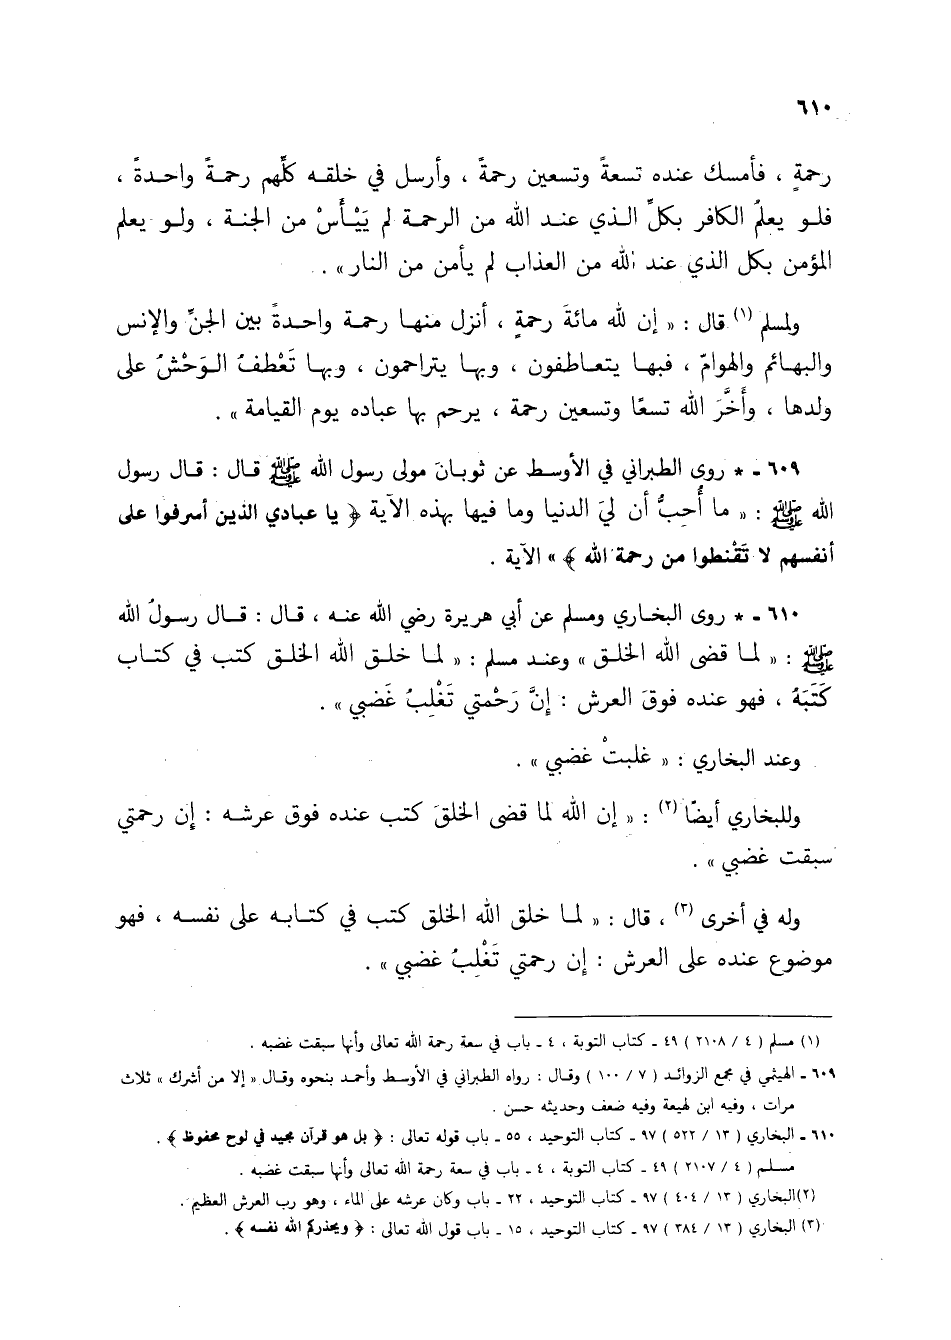 ٦١٠
رحمةٍ ، فأمسك عنده تسعةً وتسعين رحمةً ، وأرسل في خلقه كلِّهم رحمةً واحدةً ،
فلو يعلمُ الكافر بكلِّ الذي عند الله من الرحمة لم يَيْأَسْ من الجنة ، ولو يعلم
المؤمن بكل الذي عند الله من العذاب لم يأمن من النار» .
ولمسلم (١) قال : « إن لله مائةَ رحمةٍ ، أنزل منها رحمة واحدةً بين الجنِّ والإنس
والبهائم والهوامّ ، فبها يتعاطفون ، وبها يتراحمون ، وبها تَعْطفُ الوَحْشُ على
ولدها ، وأَخَّرَ الله تسعًا وتسعين رحمة ، يرحم بها عباده يوم القيامة » .
٦٠٩ - * روى الطبراني في الأوسط عن ثوبانَ مولى رسول الله ﷺ قال : قال رسول
الله ﷺ : « ما أُحِبُّ أن ليَ الدنيا وما فيها بهذه الآية ﴿ يا عبادي الذين أسرفوا على
أنفسهم لا تَقْنطوا من رحمة الله ﴾ » الآية .
٦١٠ - * روى البخاري ومسلم عن أبي هريرة رضي الله عنه ، قال : قال رسولُ الله
ﷺ : « لما قضى الله الخلق » وعند مسلم : « لما خلق الله الخلق كتب في كتاب
كَتَبَهُ ، فهو عنده فوقَ العرش : إنَّ رَحْمتي تَغْلِبُ غَضبي » .
وعند البخاري : « غلبتْ غضبي » .
وللبخاري أيضًا (٢) : « إن الله لما قضى الخلقَ كتب عنده فوق عرشه : إن رحمتي
سبقت غضبي » .
وله في أخرى (٣) ، قال : « لما خلق الله الخلق كتب في كتابه على نفسه ، فهو
موضوع عنده على العرش : إن رحمتي تَغْلِبُ غضبي » .
(١) مسلم ( ٤ / ٢١٠٨ ) ٤٩ - كتاب التوبة ، ٤ - باب في سعة رحمة الله تعالى وأنها سبقت غضبه .
٦٠٩ - الهيثمي في مجمع الزوائد ( ٧ / ١٠٠ ) وقال : رواه الطبراني في الأوسط وأحمد بنحوه وقال « إلا من أشرك » ثلاث
مرات ، وفيه ابن لهيعة وفيه ضعف وحديثه حسن .
٦١٠ - البخاري ( ١٣ / ٥٢٢ ) ٩٧ - كتاب التوحيد ، ٥٥ - باب قوله تعالى : ﴿ بل هو قرآن مجيد في لوح محفوظ ﴾ .
مسلم ( ٤ / ٢١٠٧ ) ٤٩ - كتاب التوبة ، ٤ - باب في سعة رحمة الله تعالى وأنها سبقت غضبه .
(٢) البخاري ( ١٣ / ٤٠٤ ) ٩٧ - كتاب التوحيد ، ٢٢ - باب وكان عرشه على الماء ، وهو رب العرش العظيم .
(٣) البخاري ( ١٣ / ٣٨٤ ) ٩٧ - كتاب التوحيد ، ١٥ - باب قول الله تعالى : ﴿ ويحذركم الله نفسه ﴾ .